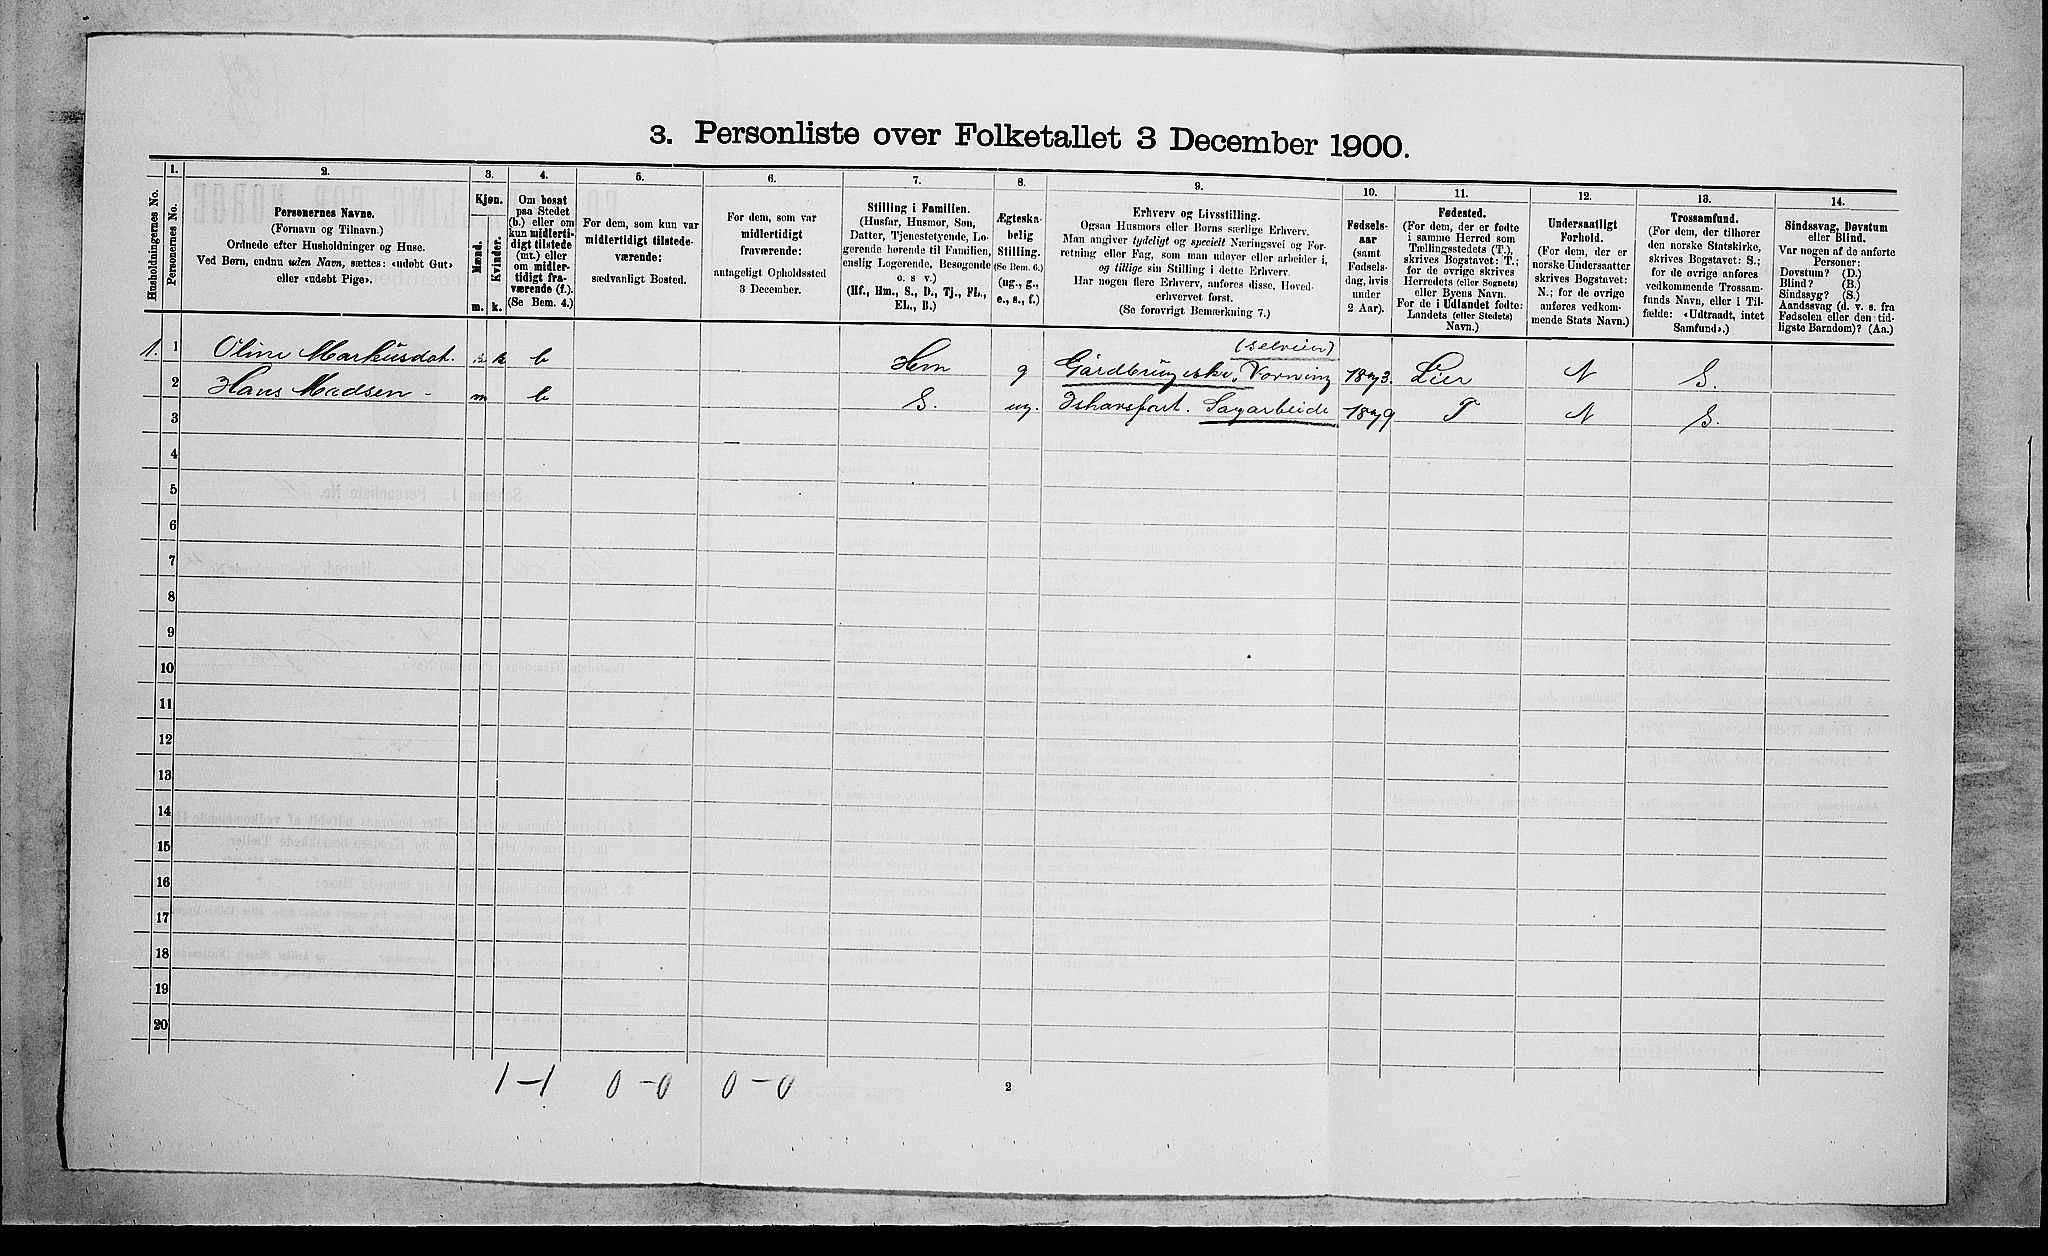 3. Personliste over Folketallet 3 December 1900.
Husholdningernes No.
1.
Personernes No.
2.
Personernes Navne.
(Fornavn og Tilnavn.)
Ordnede efter Husholdninger og Huse.
Ved Børn, endnu uden Navn, sættes: «udøbt Gut»
eller «udøbt Pige».
3.
Kjøn.
Mænd.
Kvinder.
m. k.
4.
Om bosat
paa Stedet
(b.) eller om
kun midler-
tidigt tilstede
(mt.) eller
om midler-
tidigt fra-
værende (f.).
(Se Bem. 4.)
5.
For dem, som kun var
midlertidigt tilstede-
værende:
sædvanligt Bosted.
6.
For dem, som var
midlertidigt
fraværende:
antageligt Opholdssted
3 December.
7.
Stilling i Familien.
(Husfar, Husmor, Søn,
Datter, Tjenestetyende, Lo-
gerende hørende til Familien,
enslig Logerende, Besøgende
o. s v.)
(Hf., Hm., S., D., Tj., FL.,
EL., B.)
8.
Ægteska-
belig
Stilling.
(Se Bem. 6.)
(ug., g.,
e., s., f.)
9.
Erhverv og Livsstilling.
Ogsaa Husmors eller Børns særlige Erhverv.
Man angiver tydeligt og specielt Næringsvei og For-
retning eller Fag, som man udøver eller arbeider i,
og tillige sin Stilling i dette Erhverv.
Har nogen flere Erhverv, anføres disse, Hoved-
erhvervet først.
(Se forøvrigt Bemærkning 7.)
10.
Fødsels-
aar
(samt
Fødsels-
dag, hvis
under
2 Aar).
11.
Fødested.
(For dem, der er fødte
i samme Herred som
Tællingsstedets (T.),
skrives Bogstavet: T.;
for de øvrige skrives
Herredets (eller Sognets)
eller Byens Navn.
For de i Udlandet fødte:
Landets (eller Stedets)
Navn.)
12.
Undersaatligt
Forhold.
(For dem, der er
norske Undersaatter
skrives Bogstavet:
N.; for de øvrige
anføres vedkom-
mende Stats Navn.)
13.
Trossamfund.
(For dem, der tilhører
den norske Statskirke,
skrives Bogstavet: S.;
for de øvrige anføres
vedkommende Trossam-
funds Navn, eller i Til-
fælde: «Udtraadt, intet
Samfund».)
14.
Sindssvag, Døvstum
eller Blind.
Var nogen af de anførte
Personer:
Døvstum? (D.)
Blind? (B.)
Sindssyg? (S.)
Aandssvag (d. v. s. fra
Fødselen eller den tid-
ligste Barndom)? (Aa.)
(selveier)
1. 1 Oline Markusdat. k b Hm g 18 3. Lier N S.
2 Hans Madsen m b S. ug. Sagarbeide 18 9 T N S.
3
4
5
6
7
8
9
10
11
12
13
14
15
16
17
18
19
20
1-1 0-0 0-0 2